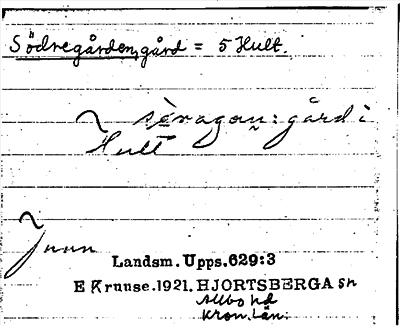 Södregården, gård = 5 Hult.
sèragan: gård i
Hult
Landsm. Upps. 629:3
E Kruuse. 1921. HJORTSBERGA sn
Allbo hd
Kron. län.